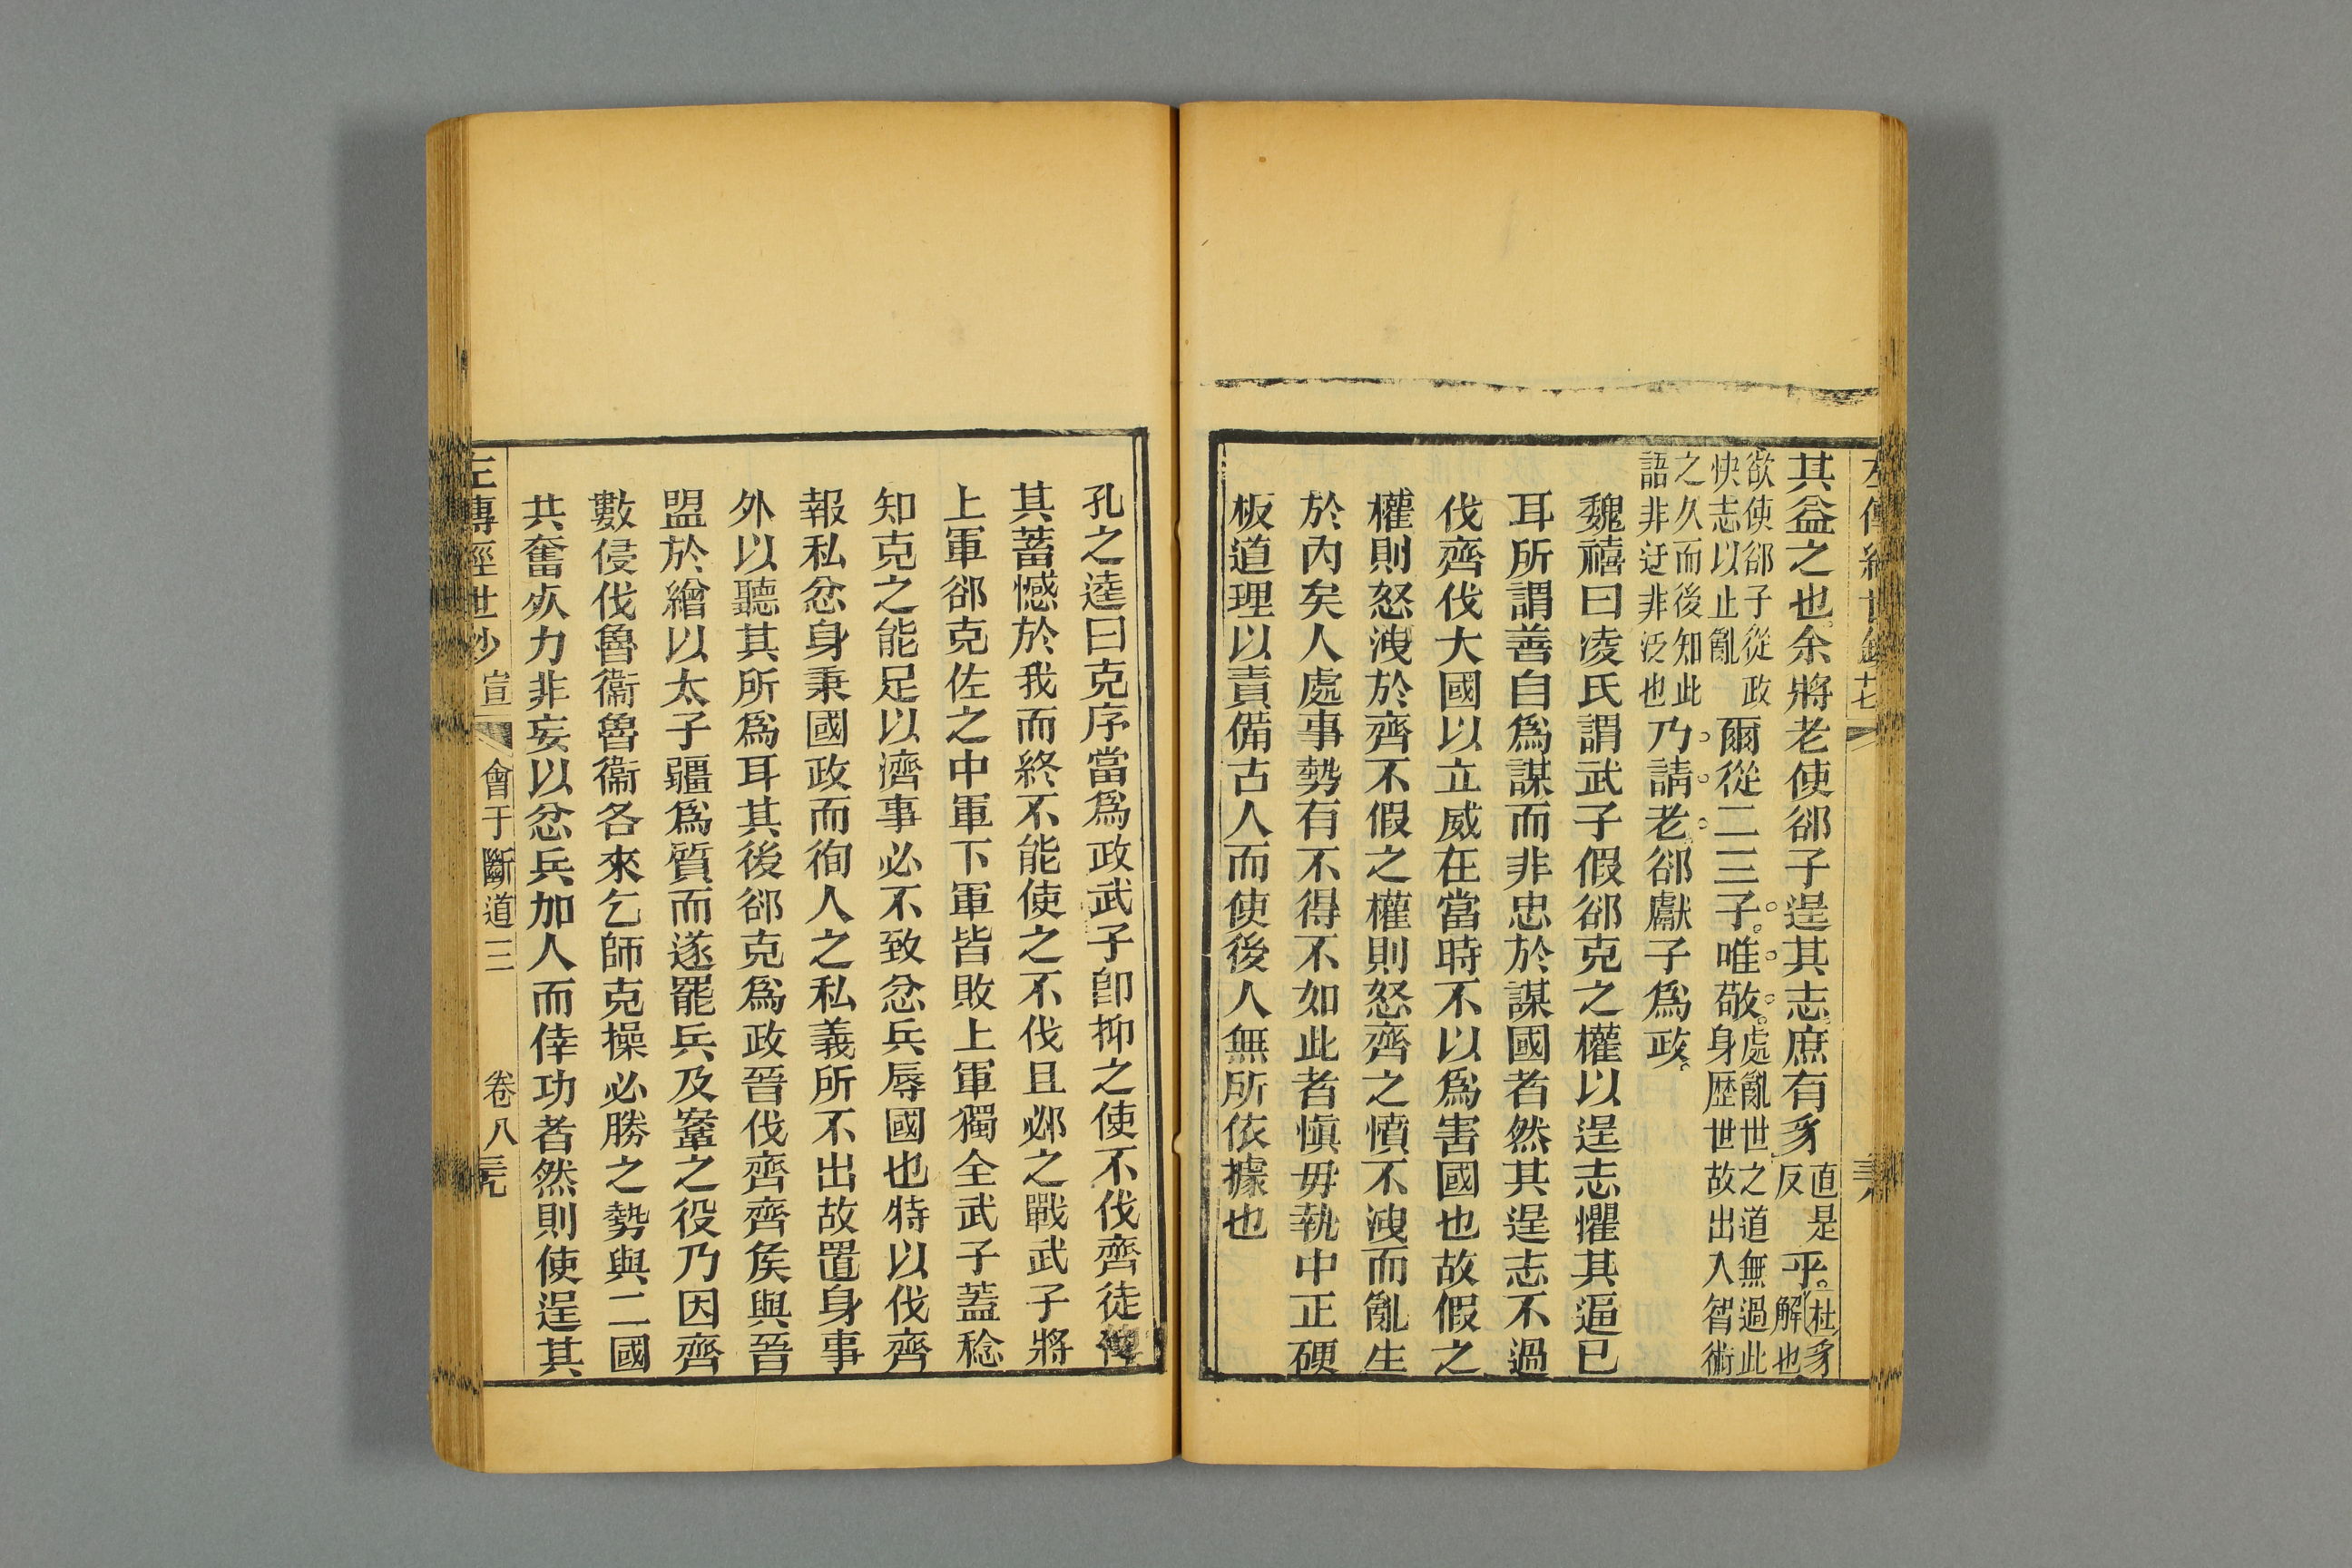 其益之也余將老使郤子逞其志庶有豸直是反乎杜豸解也
欲使郤子從政快志以止亂爾從二三子唯敬處亂世之道無過此身歷世故出入智術
之久而後知此語非迂非泛也乃請老郤獻子為政
魏禧曰凌氏謂武子假郤克之權以逞志懼其逼已
耳所謂善自爲謀而非忠於謀國者然其逞志不過
伐齊伐大國以立威在當時不以爲害國也故假之
權則怒洩於齊不假之權則怒齊之憤不洩而亂生
於內矣人處事勢有不得不如此者愼毋執中正硬
板道理以責備古人而使後人無所依據也
孔之逵曰克序當爲政武子卽抑之使不伐齊徒
其蓄憾於我而終不能使之不伐且邲之戰武子將
上軍郤克佐之中軍下軍皆敗上軍獨全武子蓋稔
知克之能足以濟事必不致忿兵辱國也特以伐齊
報私忿身秉國政而徇人之私義所不出故置身事
外以聽其所爲耳其後郤克爲政晉伐齊齊矦與晉
盟於繒以太子疆爲質而遂罷兵及鞌之役乃因齊
數侵伐魯衞魯衞各來乞師克操必勝之勢與二國
共奮㚢力非妄以忿兵加人而倖功者然則使逞其
左傳經世鈔 宣 會于斷道三 卷八